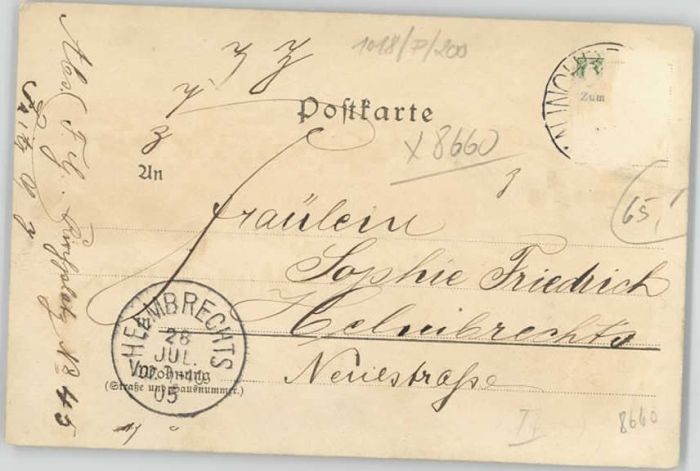 1018/P/200
MÜNCH
Zum
Postkarte
X 8660
An
65,
Fräulein
Sophie Friedrich
Helmbrechts
Neuestraße
HELMBRECHTS
28
JUL.
05
Wohnung
(Straße und Hausnummer.)
8660
Abs. F. J.
No 45